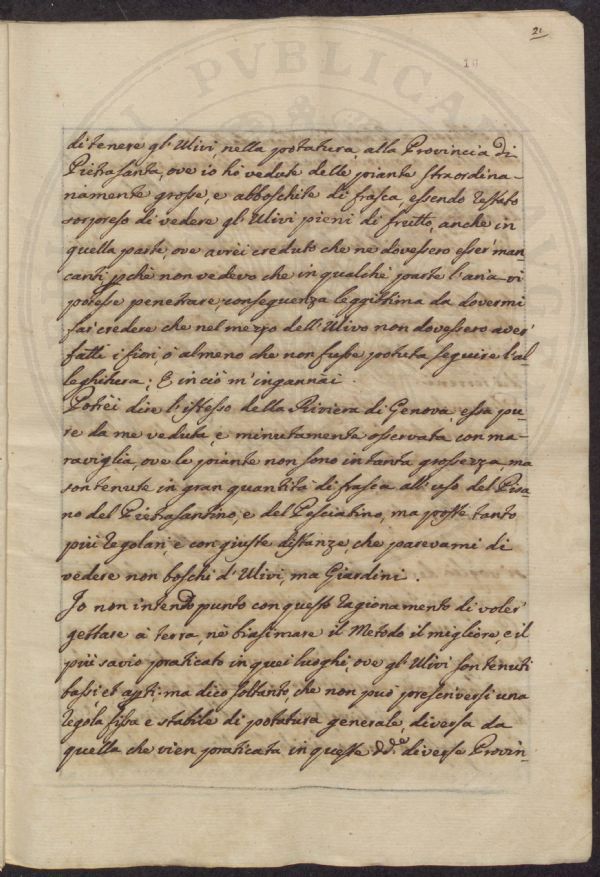 21
19
PVBLICA
di tenere gl'Ulivi, nella potatura, alla Provincia di
Pietrasanta, ove io hò vedute delle piante straordina-
riamente grosse, e abboschite di frasca, essendo restato
sorpreso di vedere gl'Ulivi pieni di frutto, anche in
quella parte, ove avrei creduto che ne dovessero esser man-
canti, pchè non vedevo che in qualche parte l'aria vi
potesse penetrare, conseguenza leggittima da dovermi
far credere che nel mezzo dell'Ulivo non dovessero aver
fatti i fiori, ò almeno che non fusse potuta seguire l'al-
leghitura; E in ciò m'ingannai.
Potrei dire l'istesso della Riviera di Genova, essa pu-
re da me veduta, e minutamente osservata con ma-
raviglia, ove le piante non sono in tanta grossezza, ma
son tenute in gran quantità di frasca all'uso del Pisa-
no del Pietrasantino, e del Pesciatino, ma poste tanto
più regolari, e con giuste distanze, che parevami di
vedere non boschi d'Ulivi, ma Giardini.
Io non intendo punto con questo ragionamento di voler
gettare à terra, nè biasimare il Metodo il migliore, e il
più savio praticato in quei luoghi, ove gl'Ulivi son tenuti
bassi et apti. ma dico soltanto, che non può prescriversi una
regola fissa e stabile di potatura generale, diversa da
quella che vien praticata in queste dde diverse Provin-